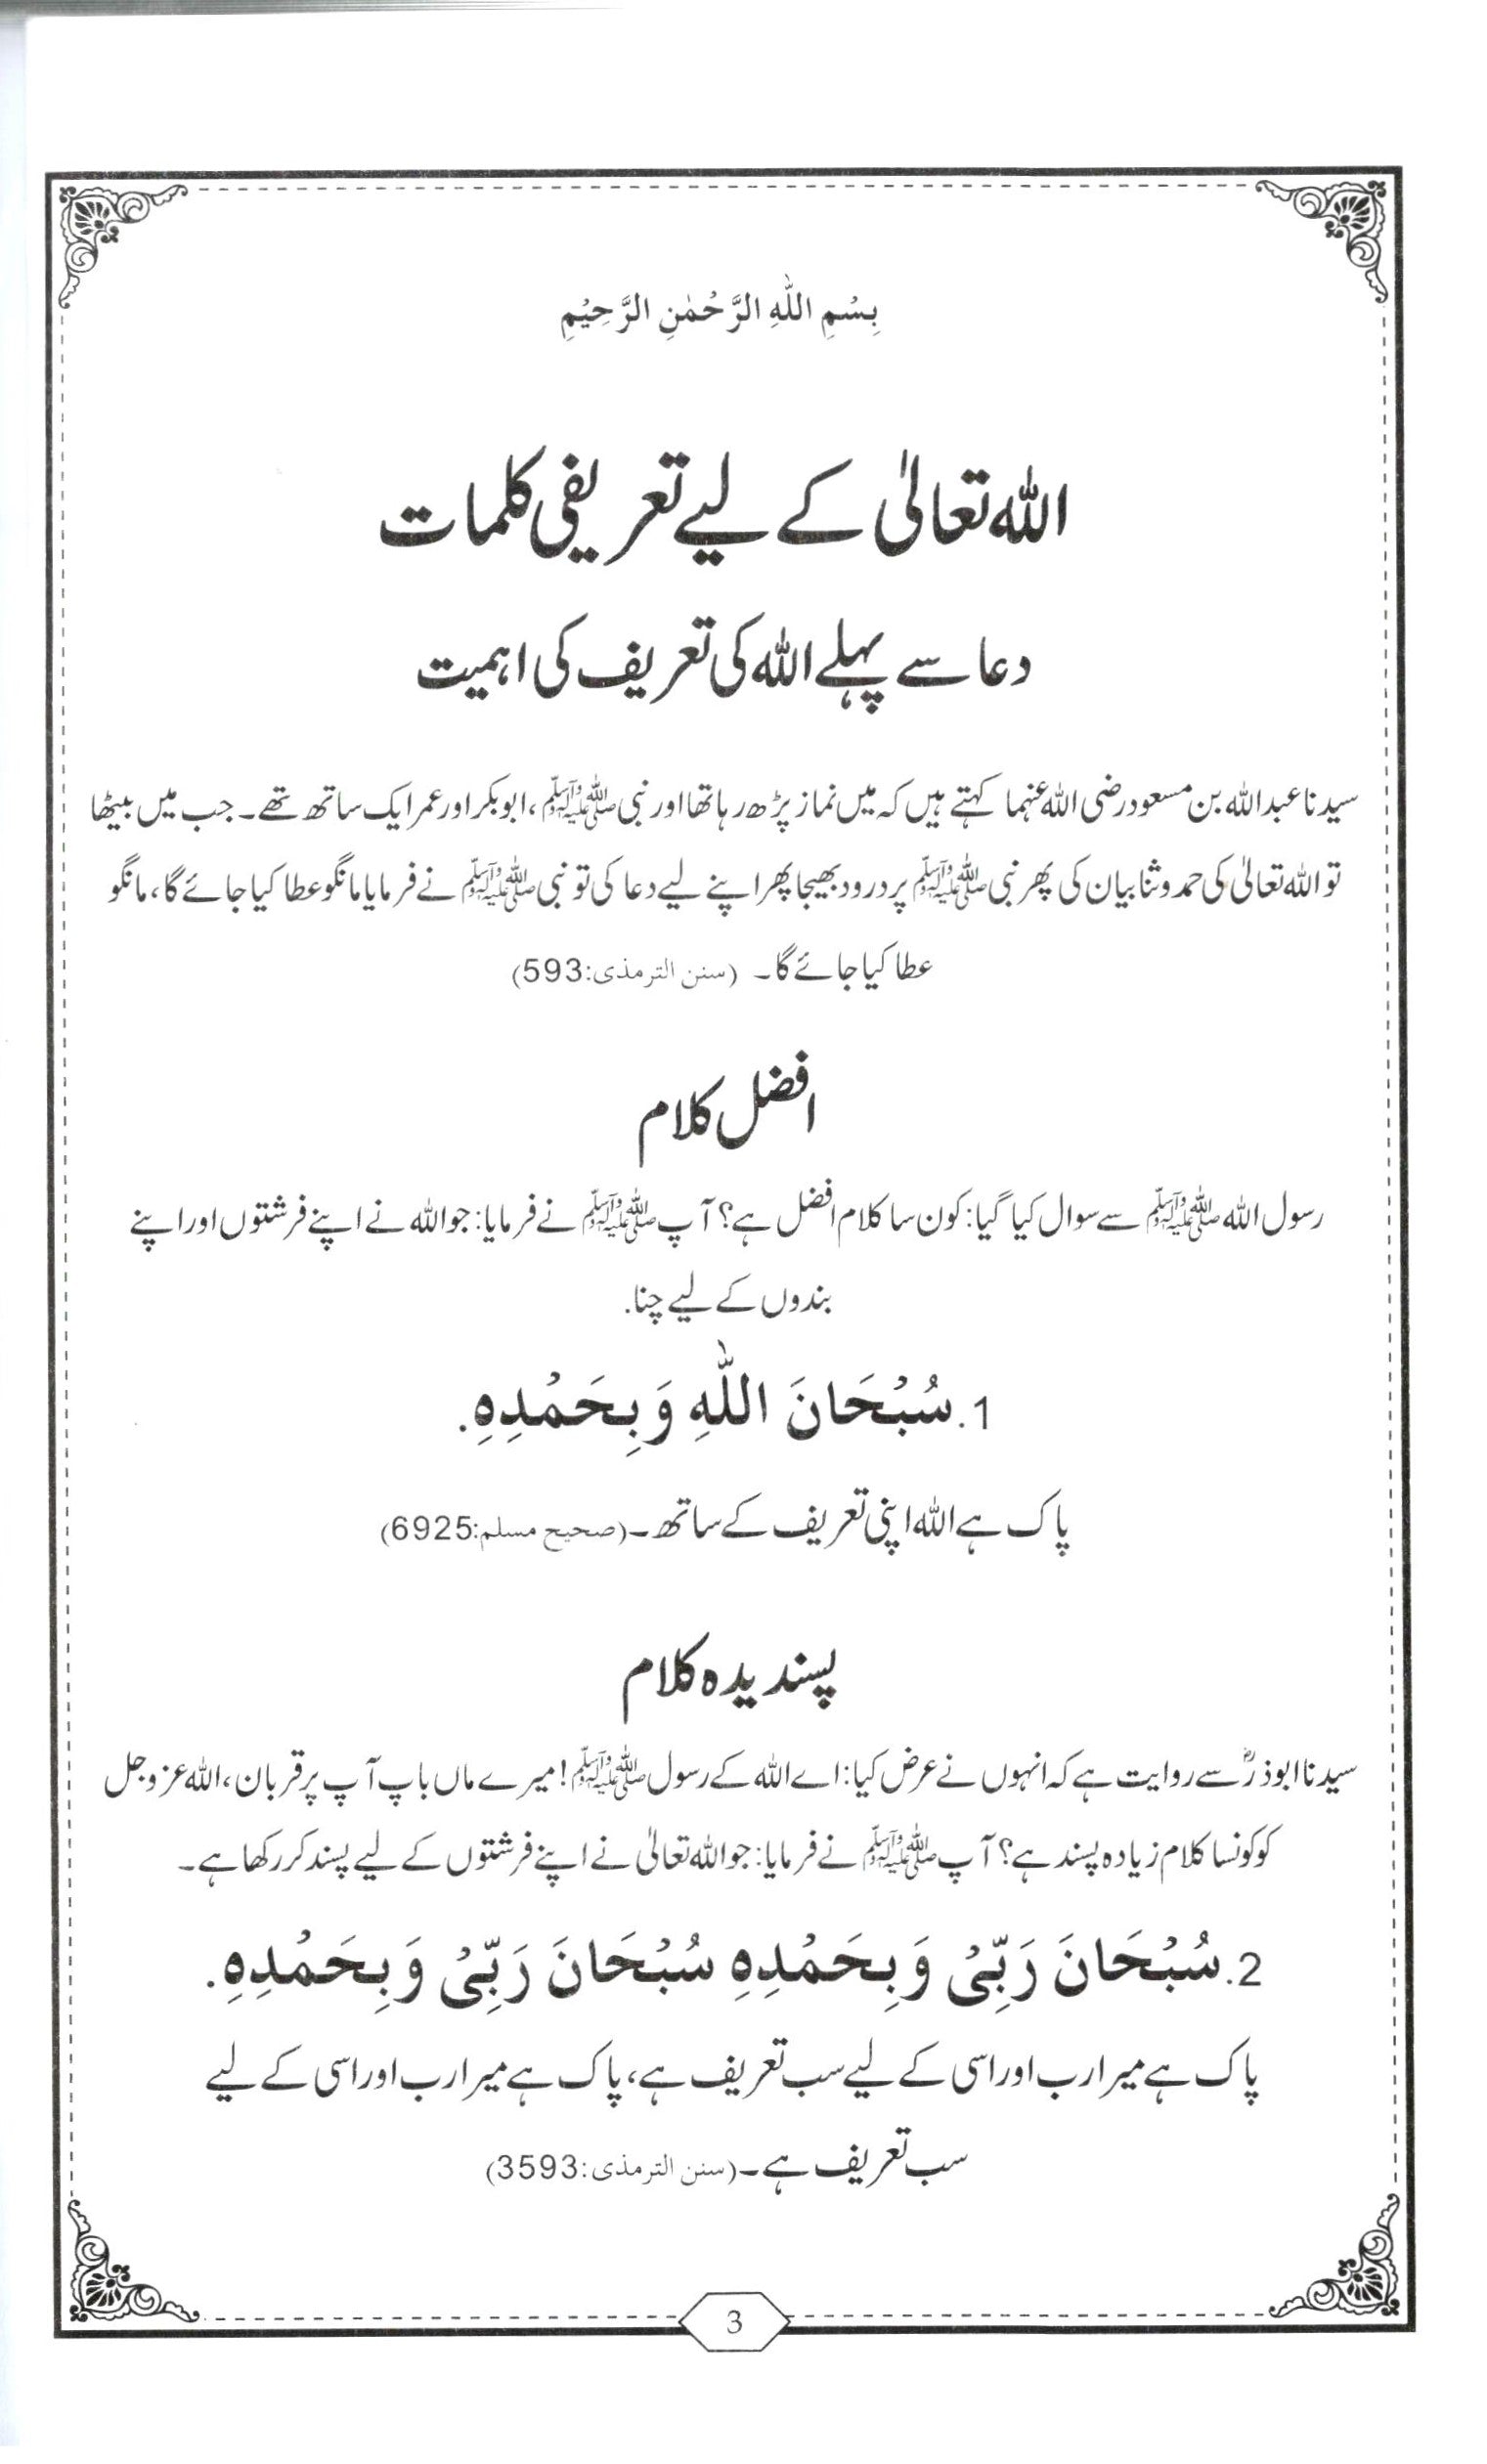 بِسْمِ اللّٰهِ الرَّحْمٰنِ الرَّحِيْمِ
اللہ تعالیٰ کے لیے تعریفی کلمات
دعا سے پہلے اللہ کی تعریف کی اہمیت
سیدنا عبد اللہ بن مسعود رضی اللہ عنہما کہتے ہیں کہ میں نماز پڑھ رہا تھا اور نبی ﷺ ،ابوبکر اور عمر ایک ساتھ تھے۔ جب میں بیٹھا
تو اللہ تعالیٰ کی حمد و ثنا بیان کی پھر نبی ﷺ پر درود بھیجا پھر اپنے لیے دعا کی تو نبی ﷺ نے فرمایا مانگو عطا کیا جائے گا، مانگو
عطا کیا جائے گا۔ (سنن الترمذی:593)
افضل کلام
رسول اللہ ﷺ سے سوال کیا گیا: کون سا کلام افضل ہے؟ آپ ﷺ نے فرمایا: جو اللہ نے اپنے فرشتوں اور اپنے
بندوں کے لیے چنا.
1. سُبْحَانَ اللّٰهِ وَبِحَمْدِهِ.
پاک ہے اللہ اپنی تعریف کے ساتھ۔ (صحیح مسلم:6925)
پسندیدہ کلام
سیدنا ابوذرؓ سے روایت ہے کہ انہوں نے عرض کیا: اے اللہ کے رسول ﷺ! میرے ماں باپ آپ پر قربان، اللہ عزوجل
کو کونسا کلام زیادہ پسند ہے؟ آپ ﷺ نے فرمایا: جو اللہ تعالیٰ نے اپنے فرشتوں کے لیے پسند کر رکھا ہے۔
2. سُبْحَانَ رَبِّىْ وَبِحَمْدِهِ سُبْحَانَ رَبِّىْ وَبِحَمْدِهِ.
پاک ہے میرا رب اور اسی کے لیے سب تعریف ہے، پاک ہے میرا رب اور اسی کے لیے
سب تعریف ہے۔ (سنن الترمذی:3593)
3